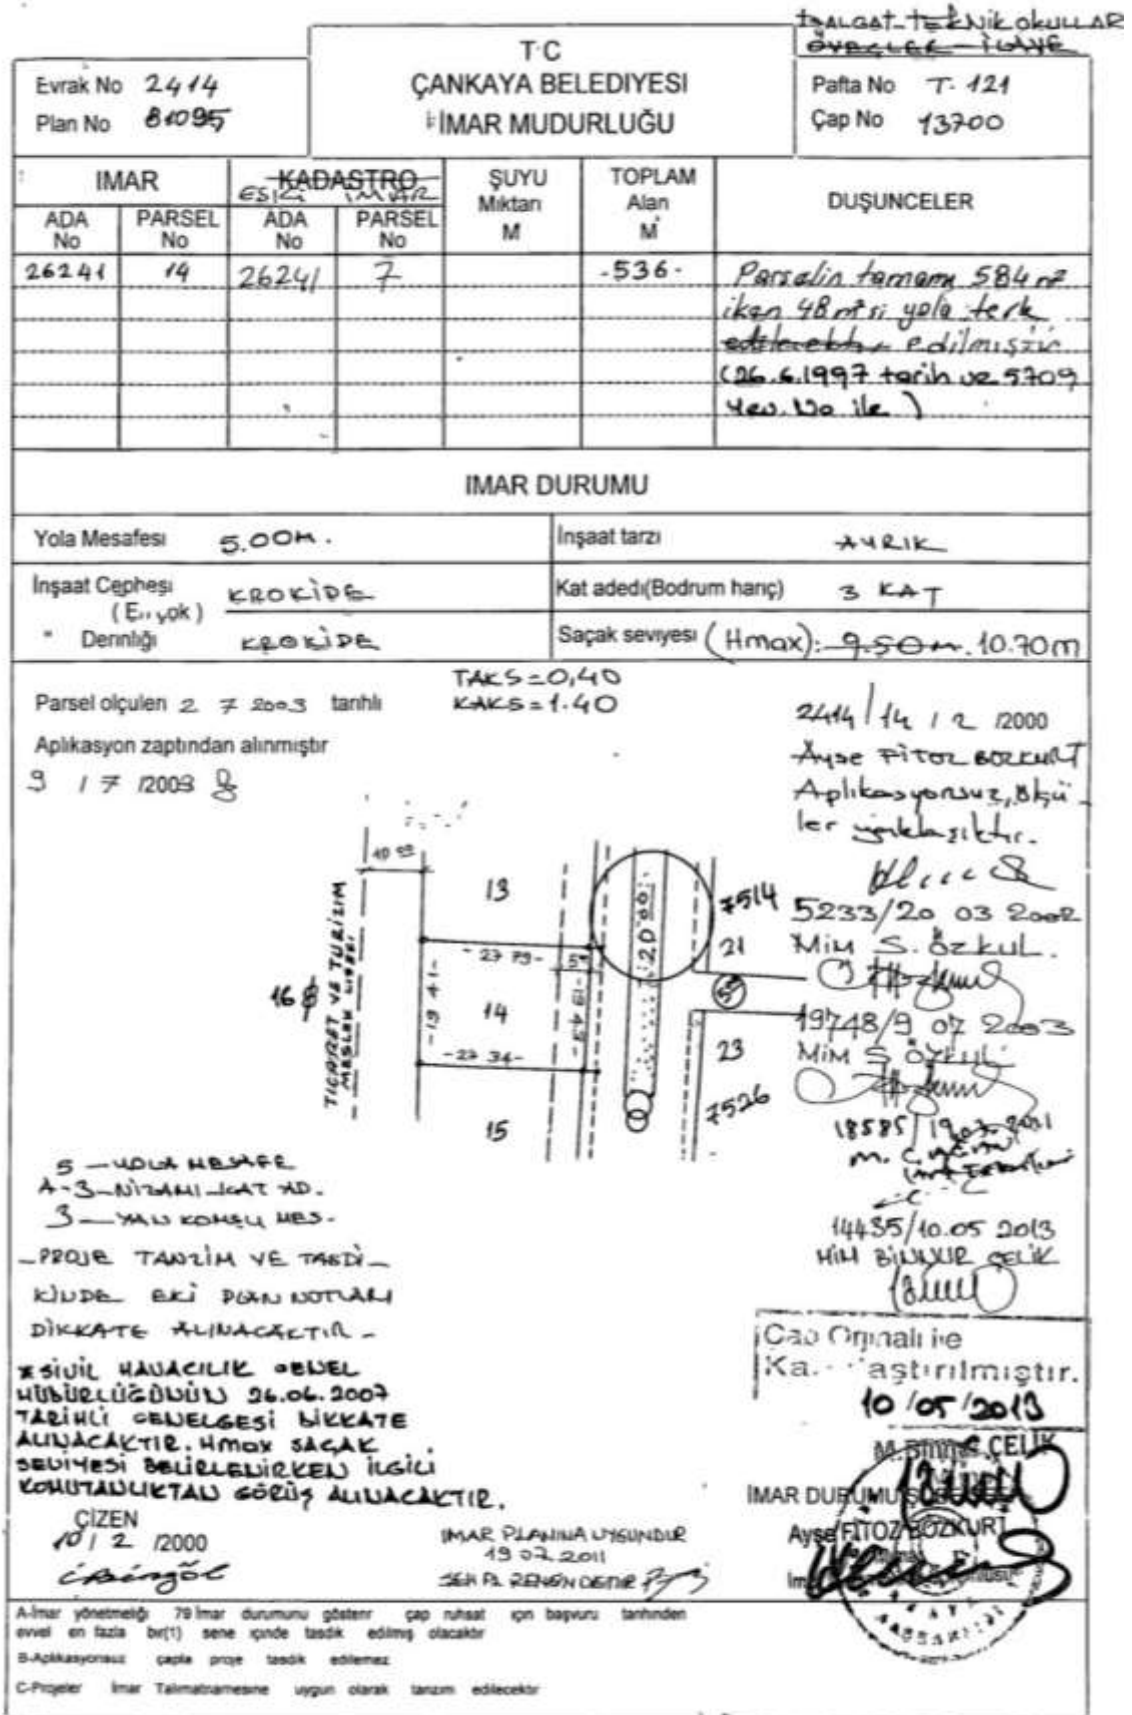 BALGAT-TEKNİK OKULLAR
ÖVEÇLER-İLAVE
Evrak No 2414
Plan No 81095
T.C
ÇANKAYA BELEDIYESI
İMAR MUDURLUĞU
Pafta No T-121
Çap No 13700
IMAR
KADASTRO
ESKİ İMAR
ŞUYU
Miktarı
M
TOPLAM
Alan
M
DUŞUNCELER
ADA No
PARSEL No
ADA No
PARSEL No
26241 14 26241 7 -536-
Parselin tamamı 584 m²
iken 48 m²si yola terk
edilecektir edilmiştir
(26.6.1997 tarih ve 5709
Yev. No ile)
IMAR DURUMU
Yola Mesafesı 5.00M.
İnşaat tarzı AYRIK
İnşaat Cephesı KROKİDE
(En çok)
" Derınlığı KROKİDE
Kat adedı(Bodrum harıç) 3 KAT
Saçak sevıyesı (Hmax): 9.50m. 10.70m
TAKS=0,40
KAKS=1.40
Parsel olçulen 2 7 2003 tarıhlı
Aplıkasyon zaptından alınmıştır
9 / 7 /2003
2414/14 / 2 /2000
Ayşe FİTOZ BOZKURT
Aplikasyonsuz, ölçü-
ler yaklaşıktır.
5233/20 03 2002
MİM S. ÖZKUL.
19748/9 07 2003
MİM S ÖZKUL
14435/10.05 2013
MİM BİNNUR ÇELİK
10 00
TİCARET VE TURİZİM
MESLEK LİSESİ
16
13
-27 79-
5
-19 41-
14
-19 43-
-27 34-
15
20 00
7514
21
23
7526
5 - YOLA MESAFE
A-3-NİZAMI-KAT AD.
3 - YAN KOMŞU MES.
-PROJE TANZİM VE TASDİ-
KİNDE EKİ PLAN NOTLARI
DİKKATE ALINACAKTIR-
* SİVİL HAVACILIK GENEL
MÜDÜRLÜĞÜNÜN 26.06.2007
TARİHLİ GENELGESİ DİKKATE
ALINACAKTIR. Hmax SAÇAK
SEVİYESİ BELİRLENİRKEN İLGİLİ
KOMUTANLIKTAN GÖRÜŞ ALINACAKTIR.
Çap Orjınalı ile
Ka aştırılmıştır.
10/05/2013
ÇELİK
İMAR DURUMU
Ayşe FİTOZ BOZKURT
ÇİZEN
10/ 2 /2000
İMAR PLANINA UYGUNDUR
19 07 2011
A-İmar yönetmeliği 79 İmar durumunu gösterır çap ruhsat ıçın başvuru tarıhınden
evvel en fazla bır(1) sene ıçınde tasdık edılmış olacaktır
B-Aplıkasyonsuz çapla proje tasdık edılemez
C-Projeler İmar Talımatnamesıne uygun olarak tanzım edılecektır